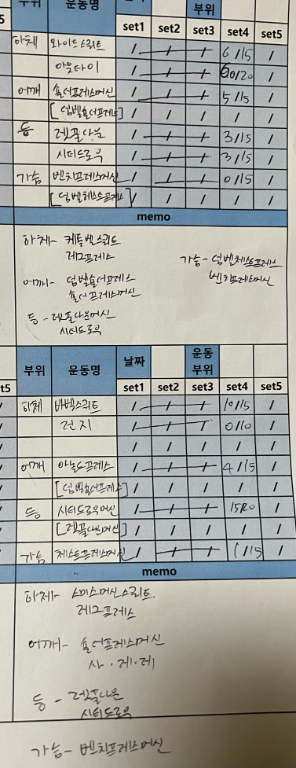 부위 운동명 날짜 부위
set1 set2 set3 set4 set5
하체 와이드스쿼트 / / / 6/15 /
아웃타이 / / / 60/20 /
어깨 숄더프레스머신 / / / 5/15 /
[덤벨숄더프레스] / / / / /
등 렛풀다운 / / / 3/15 /
시티드로우 / / / 3/15 /
가슴 벤치프레스머신 / / / 0/15 /
[덤벨체스트프레스] / / / / /
memo
하체- 케틀벨스쿼드
레그프레스
가슴- 덤벨체스트프레스
벤치프레스머신
어깨- 덤벨숄더프레스
숄더프레스머신
등- 렛풀다운머신
시티드로우
부위 운동명 날짜 운동 부위
set5 set1 set2 set3 set4 set5
하체 바벨스쿼트 / / / 10/15 /
런지 / / / 0/10 /
/ / / / /
어깨 아놀드프레스 / / / 4/15 /
[덤벨숄더프레스] / / / / /
등 시티드로우머신 / / / 15R0 /
[렛풀다운머신] / / / / /
가슴 체스트프레스머신 / / / /15 /
memo
하체- 스미스머신스쿼트.
레그프레스
어깨- 숄더프레스머신
사·레·레
등- 렛풀다운
시티드로우
가슴- 벤치프레스머신